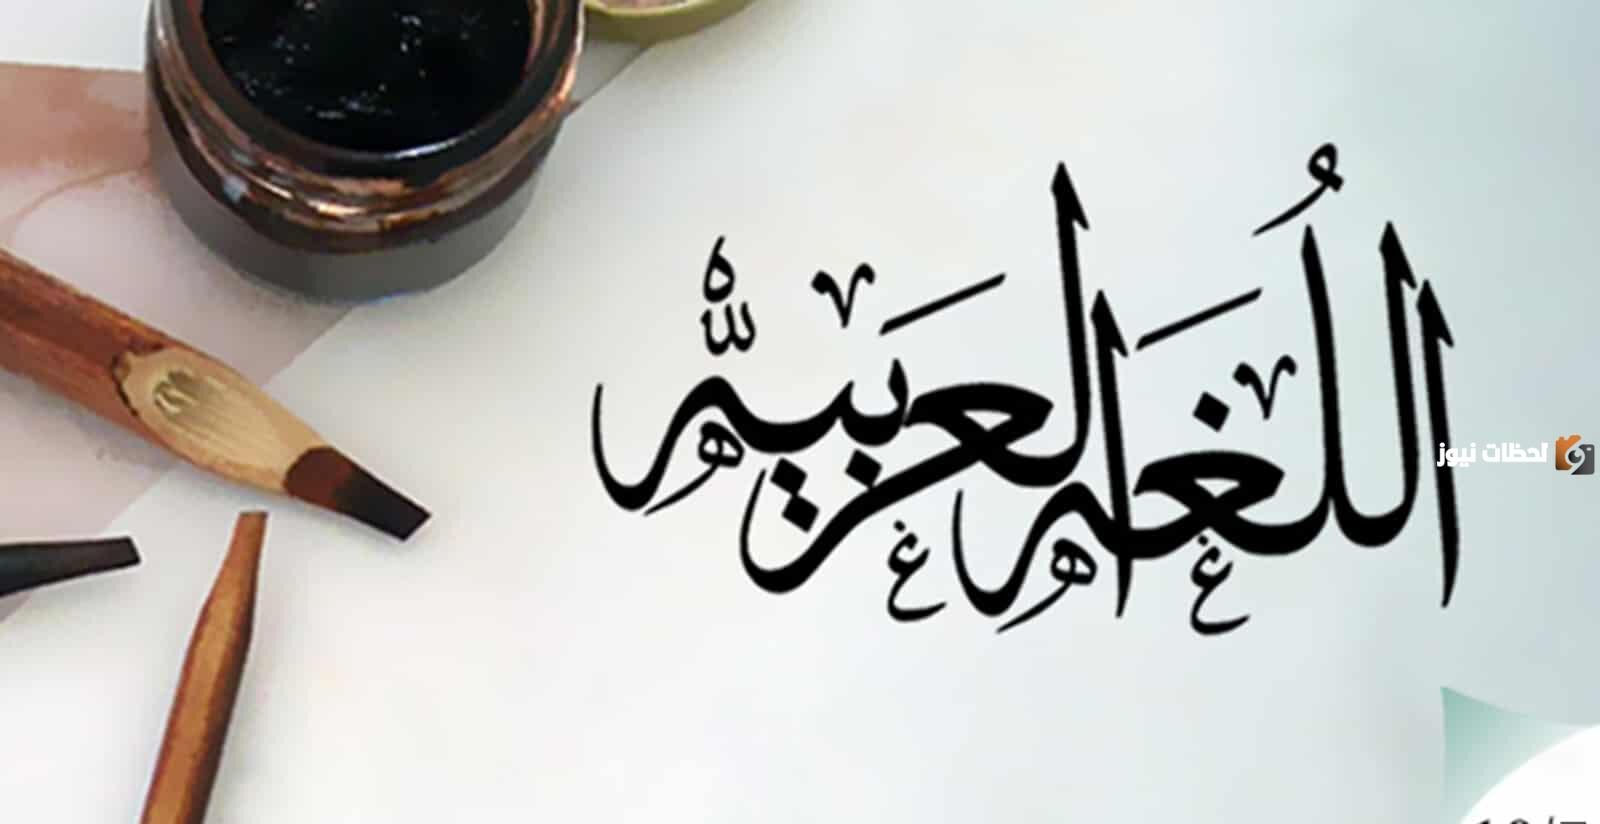 اللُغه العربيه
لحظات نيوز